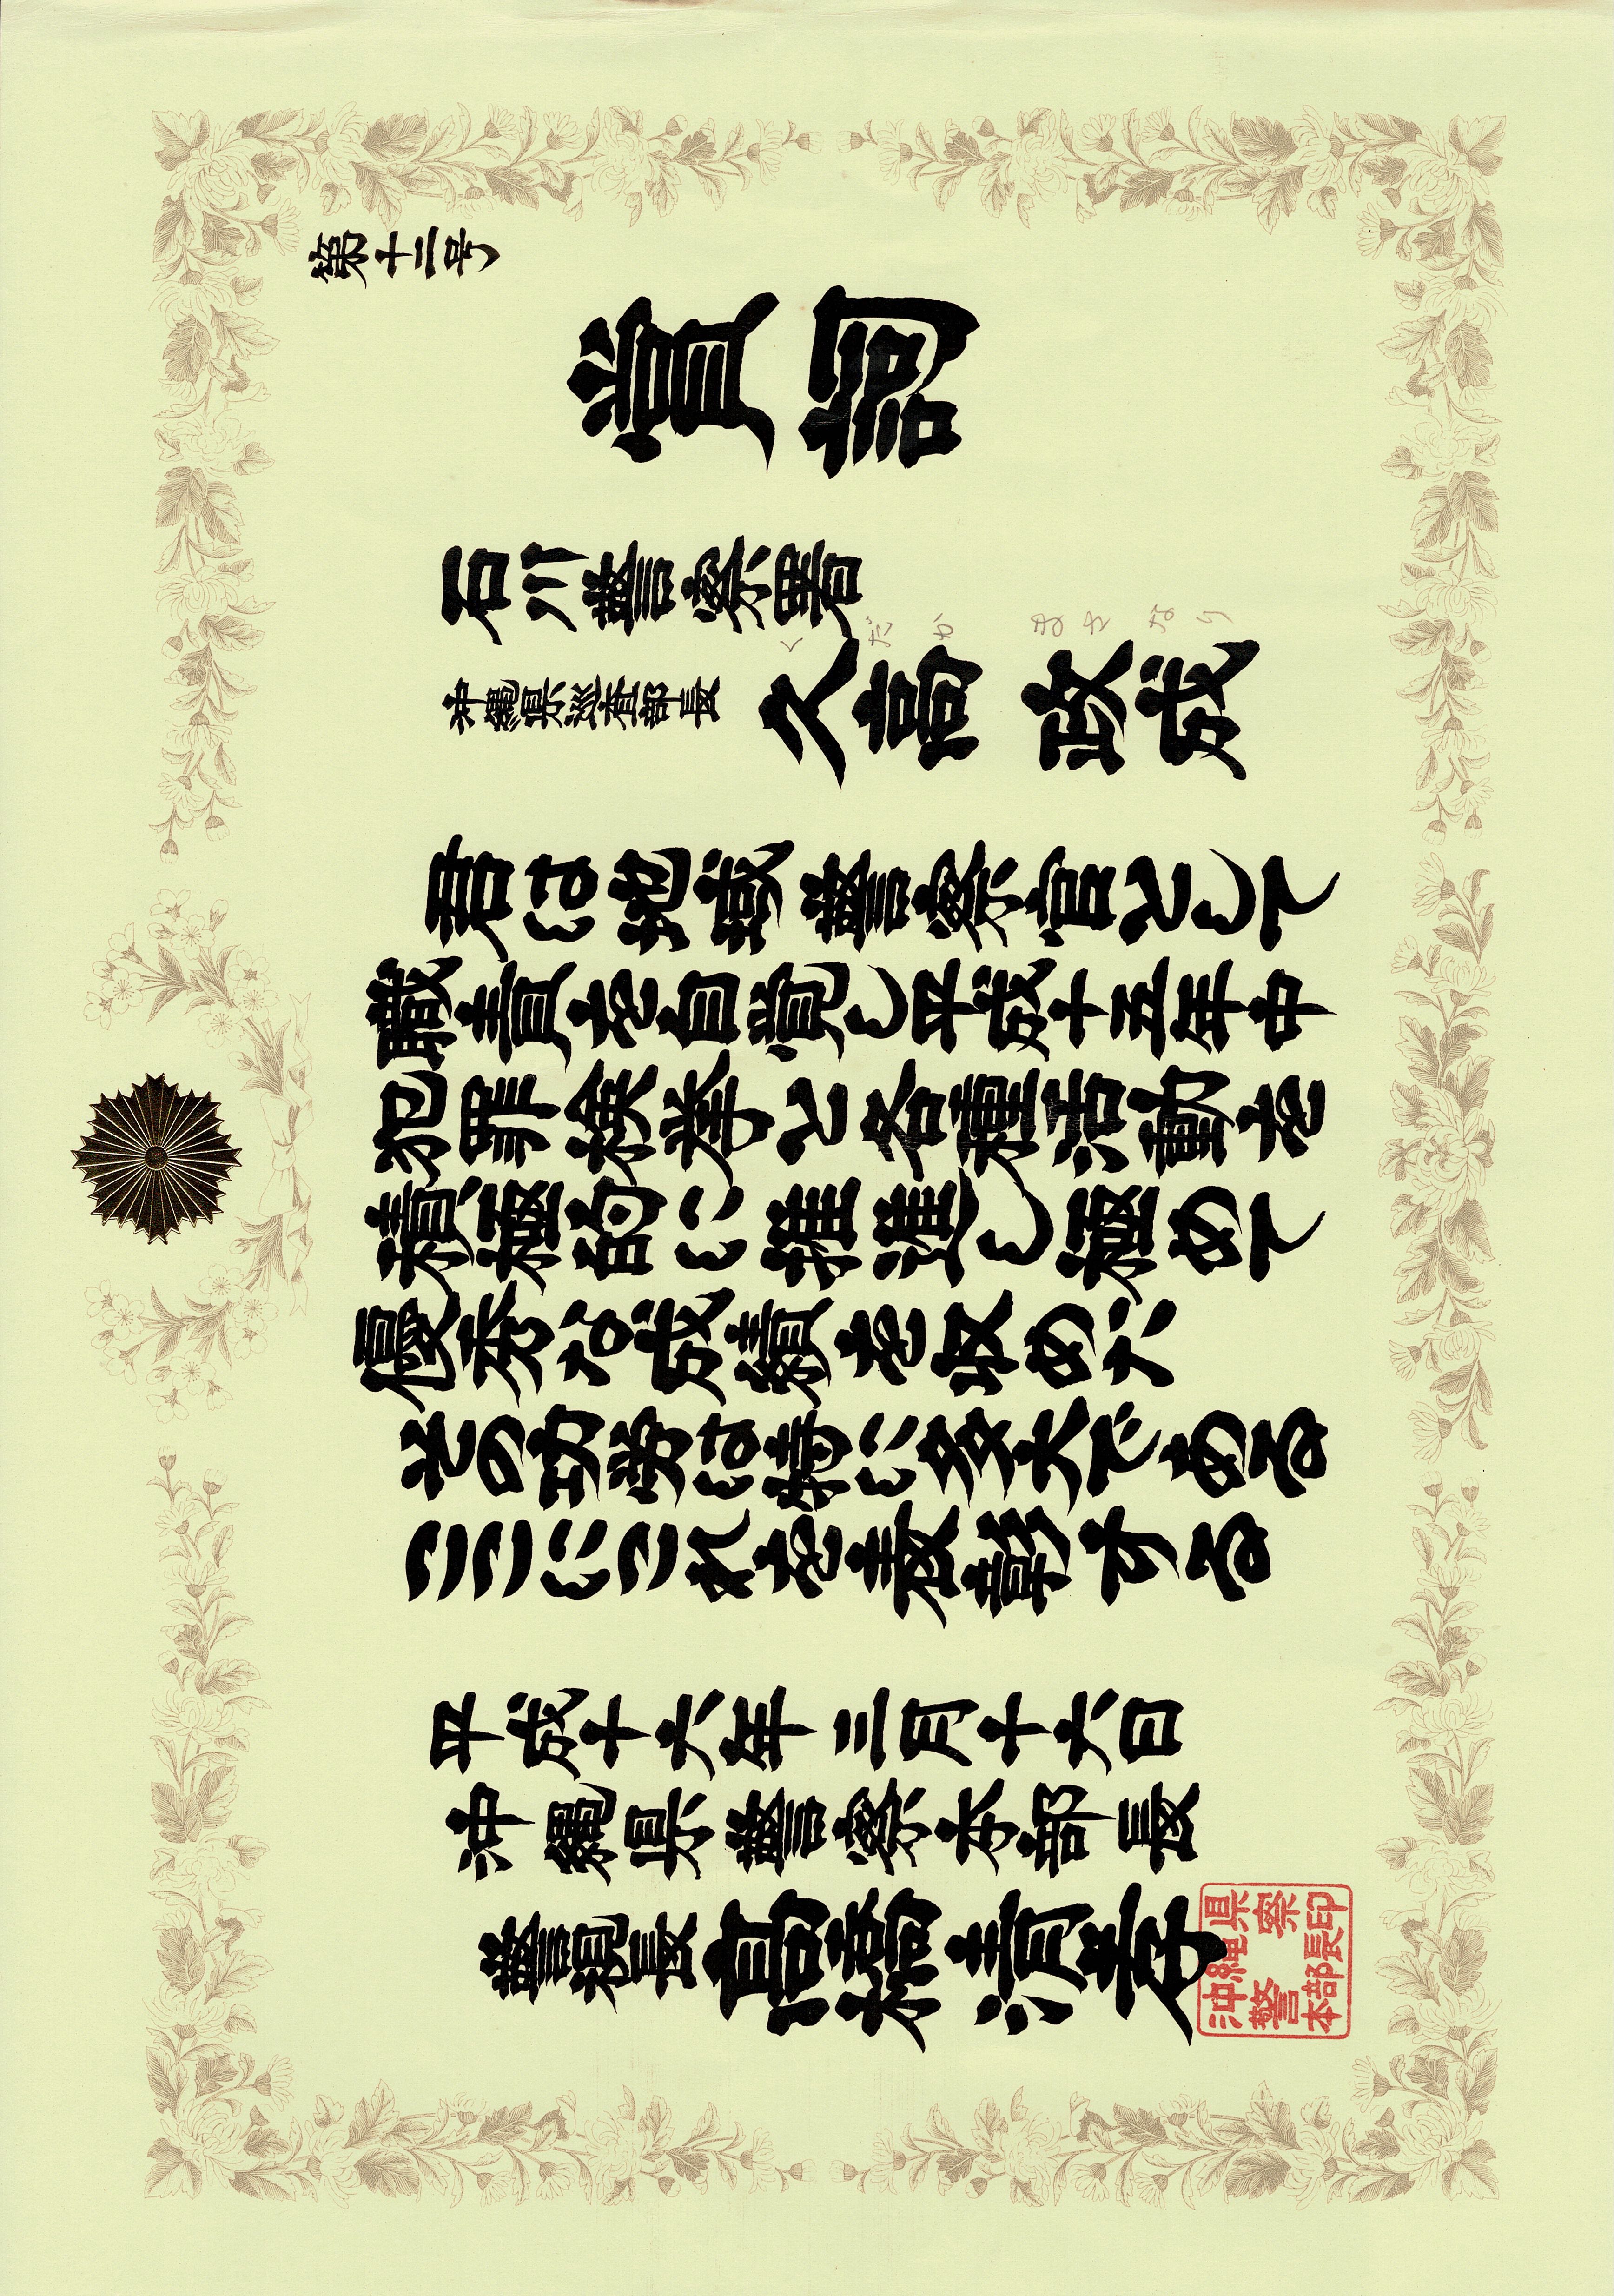 第十二号
賞詞
石川警察署
く だか まさ なり
沖縄県巡査部長 久高 政成
君は地域警察官として
職責を自覚し平成十五年中
犯罪検挙と各種活動を
積極的に推進し極めて
優秀な成績を収めた
その功労は誠に多大である
ここにこれを表彰する
平成十六年三月十六日
沖縄県警察本部長
警視長 高橋清孝
沖縄県
警察
本部長印